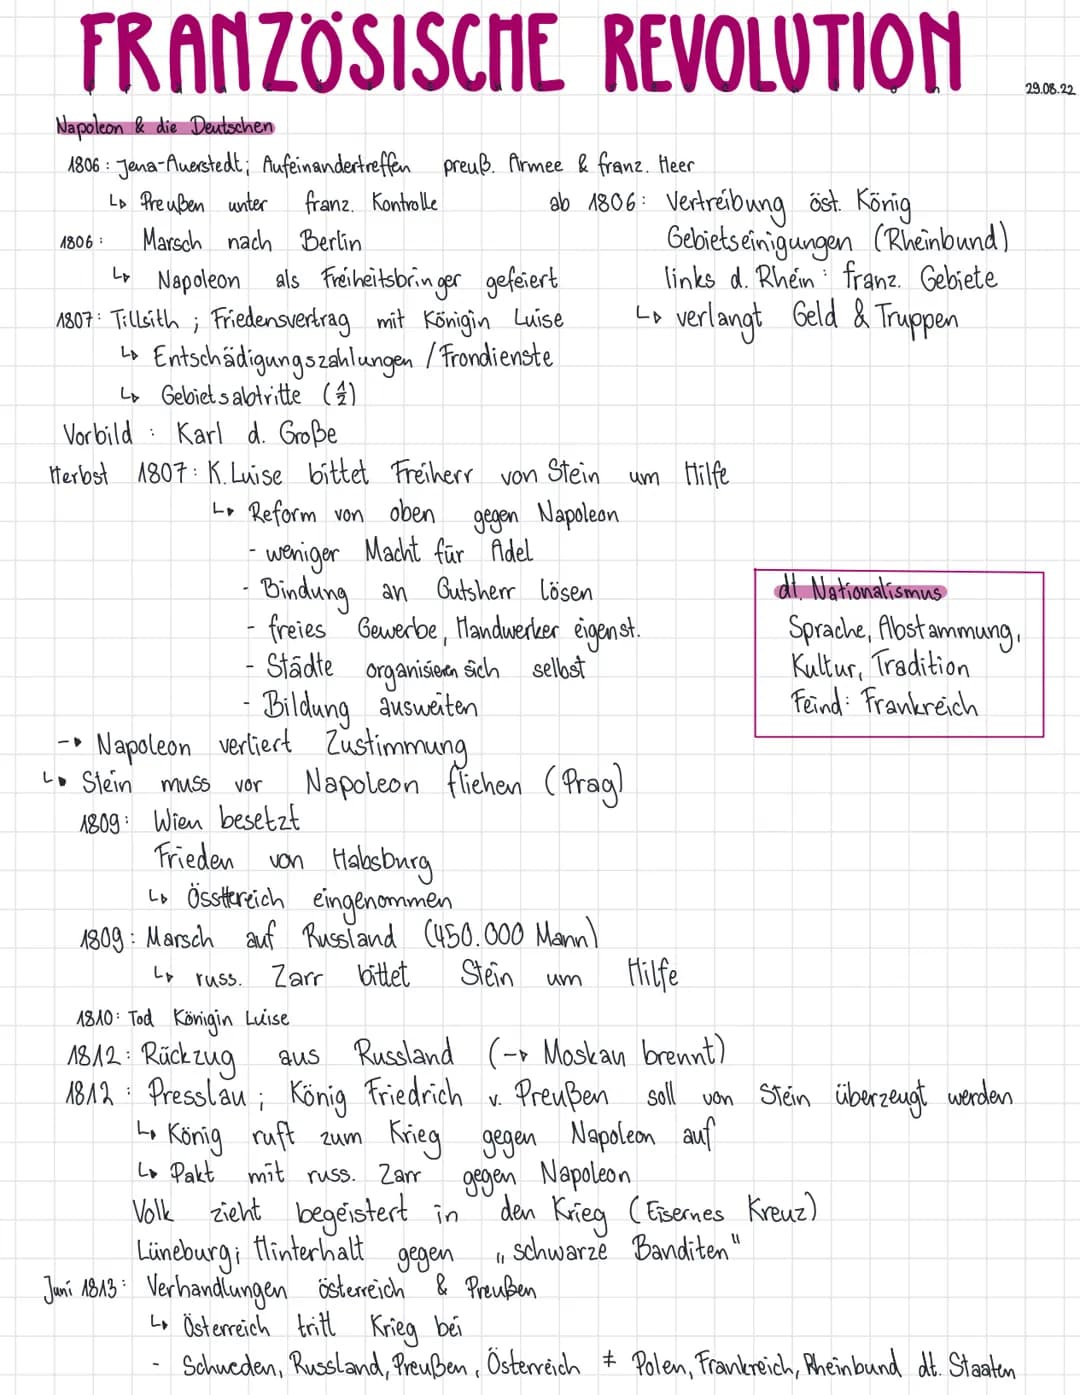 FRANZÖSISCHE REVOLUTION
29.08.22
Napoleon & die Deutschen
1806: Jena-Auerstedt; Aufeinandertreffen preuß. Armee & franz. Heer
↳ Preußen unter franz. Kontrolle
1806: Marsch nach Berlin
↳ Napoleon als Freiheitsbringer gefeiert
ab 1806: Vertreibung öst. König
Gebietseinigungen (Rheinbund)
links d. Rhein: franz. Gebiete
↳ verlangt Geld & Truppen
1807: Tillsith; Friedensvertrag mit Königin Luise
↳ Entschädigungszahlungen / Frondienste
↳ Gebietsabtritte (1/2)
Vorbild: Karl d. Große
Herbst 1807: K. Luise bittet Freiherr von Stein um Hilfe
↳ Reform von oben gegen Napoleon
- weniger Macht für Adel
- Bindung an Gutsherr lösen
- freies Gewerbe, Handwerker eigenst.
- Städte organisieren sich selbst
- Bildung ausweiten
dt. Nationalismus
Sprache, Abstammung,
Kultur, Tradition
Feind: Frankreich
→ Napoleon verliert Zustimmung
↳ Stein muss vor Napoleon fliehen (Prag)
1809: Wien besetzt
Frieden von Habsburg
↳ Össttereich eingenommen
1809: Marsch auf Russland (450.000 Mann)
↳ russ. Zarr bittet Stein um Hilfe
1810: Tod Königin Luise
1812: Rückzug aus Russland (→ Moskau brennt)
1812: Presslau; König Friedrich v. Preußen soll von Stein überzeugt werden
↳ König ruft zum Krieg gegen Napoleon auf
↳ Pakt mit russ. Zarr gegen Napoleon
Volk zieht begeistert in den Krieg (Eisernes Kreuz)
Lüneburg; Hinterhalt gegen „schwarze Banditen"
Juni 1813: Verhandlungen österreich & Preußen
↳ Österreich tritt Krieg bei
- Schweden, Russland, Preußen, Österreich ≠ Polen, Frankreich, Rheinbund dt. Staaten